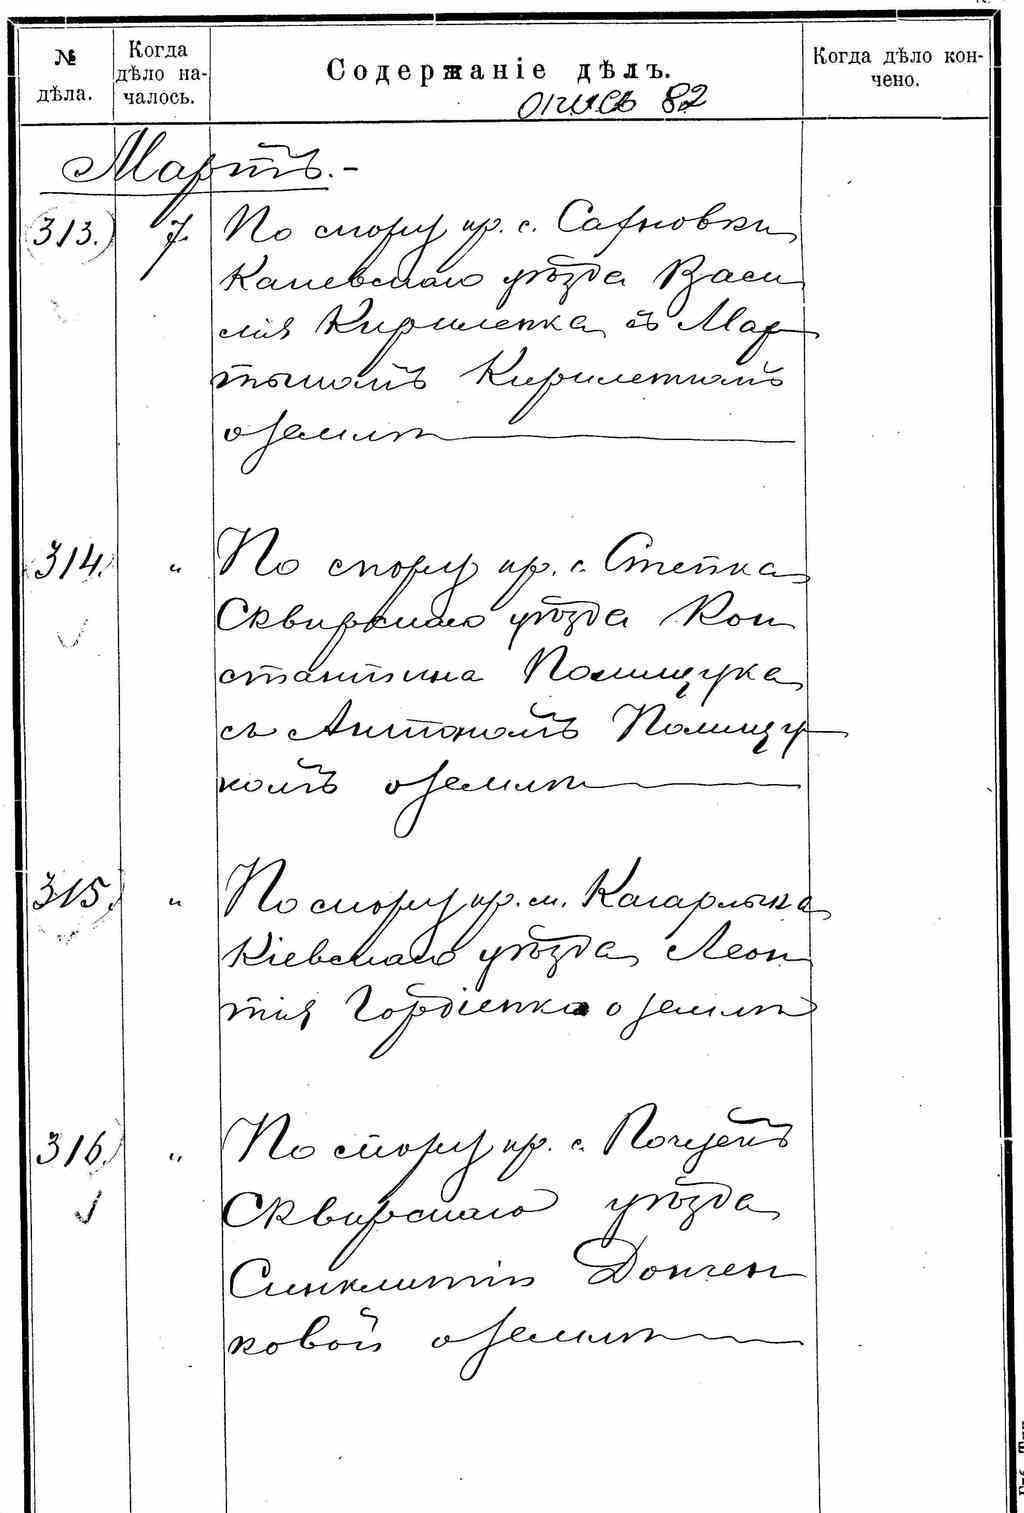 № дѣла.
Когда дѣло началось.
Содержаніе дѣлъ.
Когда дѣло кончено.
опись 82
Мартъ.-
313. 7. По спору кр. с. Сахновки
Каневскаго уѣзда Васи
лія Кириленка съ Мар
тыномъ Кириленкомъ
о землѣ
314. " По спору кр. с. Степка
Сквирскаго уѣзда Кон
стантина Полищука
съ Антономъ Полищу
комъ о землѣ
315. " По спору кр. м. Кагарлыка
Кіевскаго уѣзда Леон
тія Гордіенка о землѣ
316. " По спору кр. с. Почуекъ
Сквирскаго уѣзда
Синклитіи Дончен
ковой о землѣ